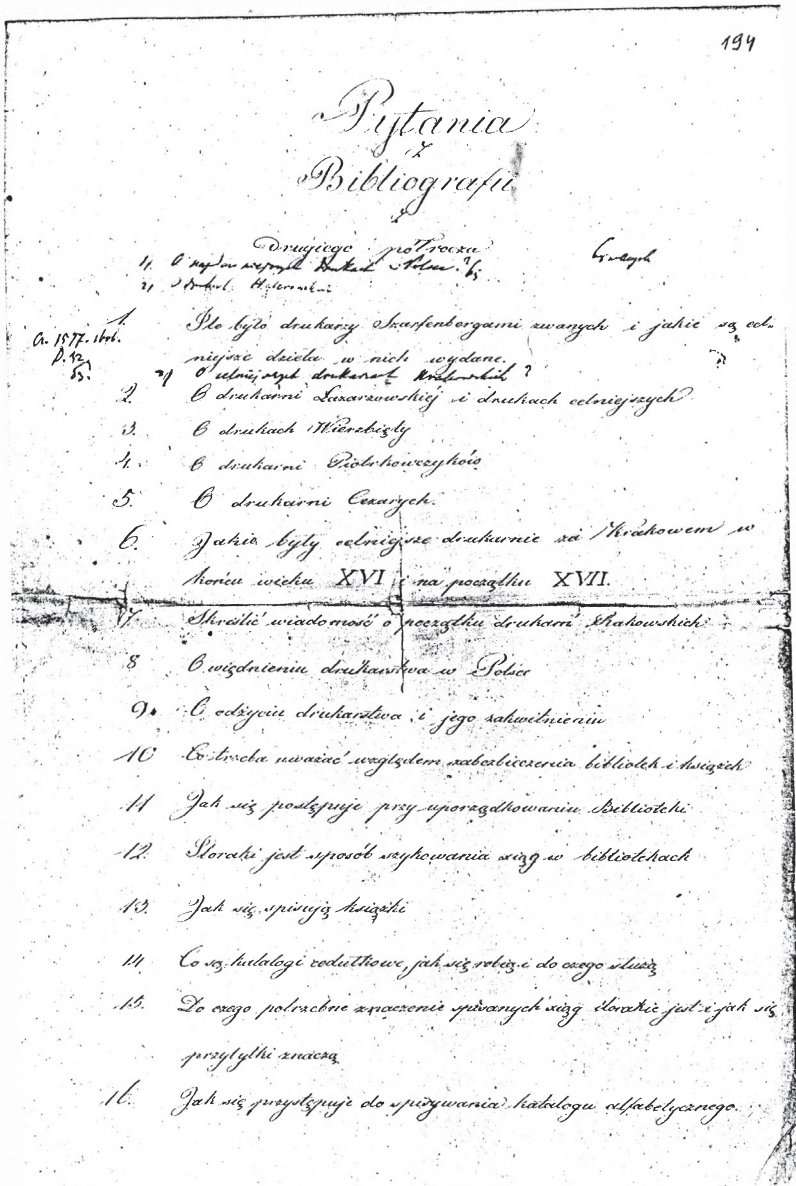 194
Pytania
z
Bibliografii
z
Drugiego półrocza
1. O Drukach w Polsce?
2,
1. Ile było drukarzy Szarfenbergami zwanych i jakie są cel-
a. 1577.
niejsze dzieła w nich wydane.
O celniejszych drukarniach Krakowskich?
2. O drukarni Łazarzowskiéj i drukach celniejszych
3. O drukach Wierzbięty
4. O drukarni Piotrkowczyków
5. O drukarni Cezarych.
6. Jakie były celniejsze drukarnie za Krakowem w
końcu wieku XVI i na początku XVII.
7 Skreślić wiadomość o początku drukarń Rakowskich
8 O więdnieniu drukarstwa w Polsce
9. O odżyciu drukarstwa i jego zakwitnieniu
10 Co trzeba uważać względem zabezbieczenia bibliotek i książek
11 Jak się postępuje przy uporządkowaniu Biblioteki
12. Iloraki jest sposób szykowania xiąg w bibliotekach
13. Jak się spisują książki
14. Co są katalogi cedułkowe, jak się robią i do czego służą
15. Do czego potrzebne znaczenie spisanych xiąg ilorakie jest i jak się
przytyłki znaczą
16. Jak się przystępuje do spisywania katalogu alfabetycznego.